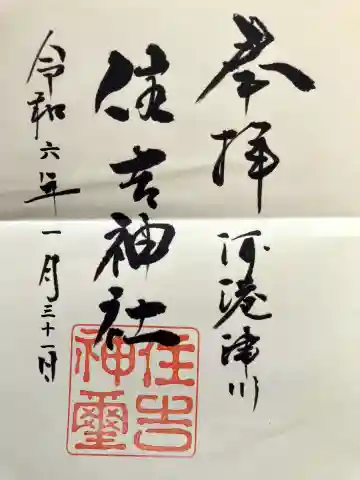 奉拝
河港津川
住吉神社
令和六年一月三十一日
住吉
神璽